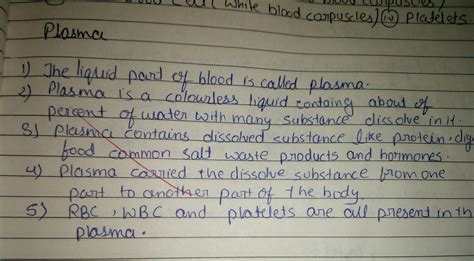 (White blood corpuscles) (iv) Platelets
Plasma
1) The liquid part of blood is called plasma.
2) Plasma is a colourless liquid containg about of
percent of water with many substance dissolve in it.
3) Plasma contains dissolved substance like protein, dig
food common salt waste products and hormones.
4) Plasma carried the dissolve substance from one
part to another part of the body.
5) RBC, WBC and platelets are all present in th
plasma.